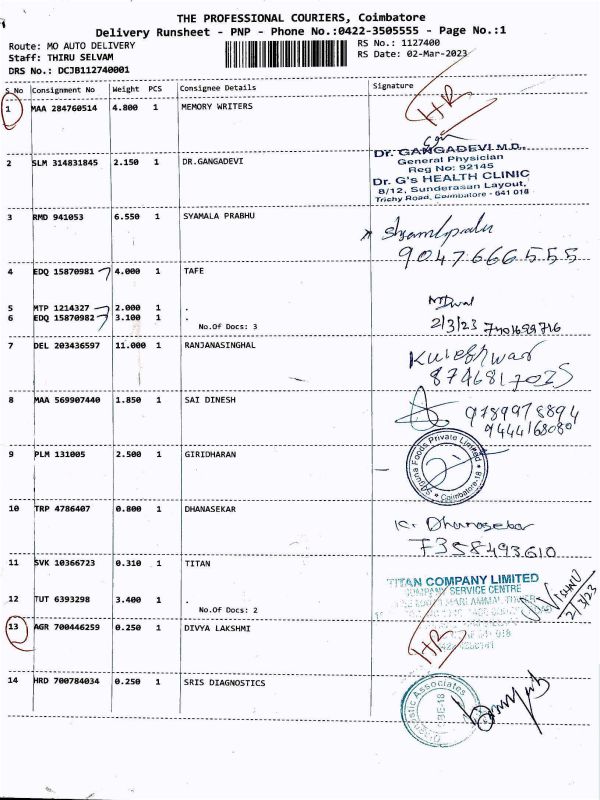 THE PROFESSIONAL COURIERS, Coimbatore
Delivery Runsheet - PNP - Phone No.:0422-3505555 - Page No.:1
Route: MO AUTO DELIVERY RS No.: 1127400
Staff: THIRU SELVAM RS Date: 02-Mar-2023
DRS No.: DCJB112740001
S No Consignment No Weight PCS Consignee Details Signature
1 MAA 284760514 4.800 1 MEMORY WRITERS HR
Dr. GANGADEVI M.D.,
General Physician
Reg No: 92145
2 SLM 314831845 2.150 1 DR.GANGADEVI
Dr. G's HEALTH CLINIC
8/12, Sundaresan Layout,
Trichy Road, Coimbatore - 641 018
3 RMD 941053 6.550 1 SYAMALA PRABHU
9047666555
4 EDQ 15870981 4.000 1 TAFE
5 MTP 1214327 2.000 1 .
6 EDQ 15870982 3.100 1 .
No.Of Docs: 3 2/3/23
7 DEL 203436597 11.000 1 RANJANASINGHAL
8746817025
8 MAA 569907440 1.850 1 SAI DINESH 9789978894
9444168080
9 PLM 131005 2.500 1 GIRIDHARAN
Saguna Foods Private Limited
Coimbatore-18
10 TRP 4786407 0.800 1 DHANASEKAR K. Dhanasekar
7358493610
11 SVK 10366723 0.310 1 TITAN
TITAN COMPANY LIMITED
COMPANY SERVICE CENTRE
12 TUT 6393298 3.400 1 .
No.Of Docs: 2
2/3/23
13 AGR 700446259 0.250 1 DIVYA LAKSHMI HR
14 HRD 700784034 0.250 1 SRIS DIAGNOSTICS